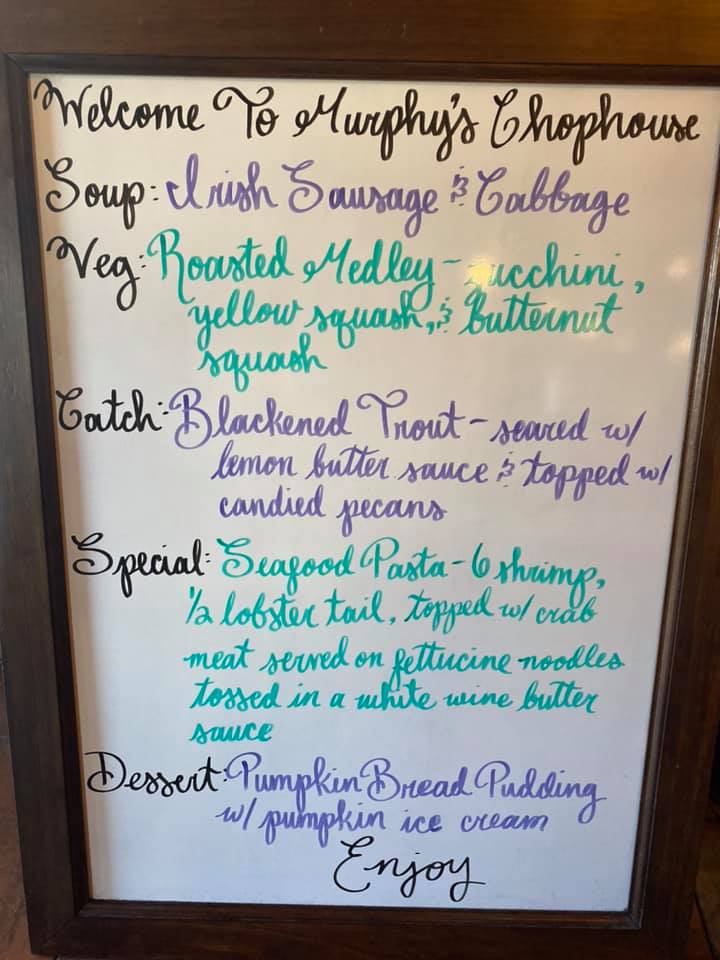 Welcome To Murphy's Chophouse
Soup: Irish Sausage & Cabbage
Veg: Roasted Medley - zucchini,
yellow squash, & butternut
squash
Catch: Blackened Trout - seared w/
lemon butter sauce & topped w/
candied pecans
Special: Seafood Pasta - 6 shrimp,
1/2 lobster tail, topped w/ crab
meat served on fettucine noodles
tossed in a white wine butter
sauce
Dessert: Pumpkin Bread Pudding
w/ pumpkin ice cream
Enjoy